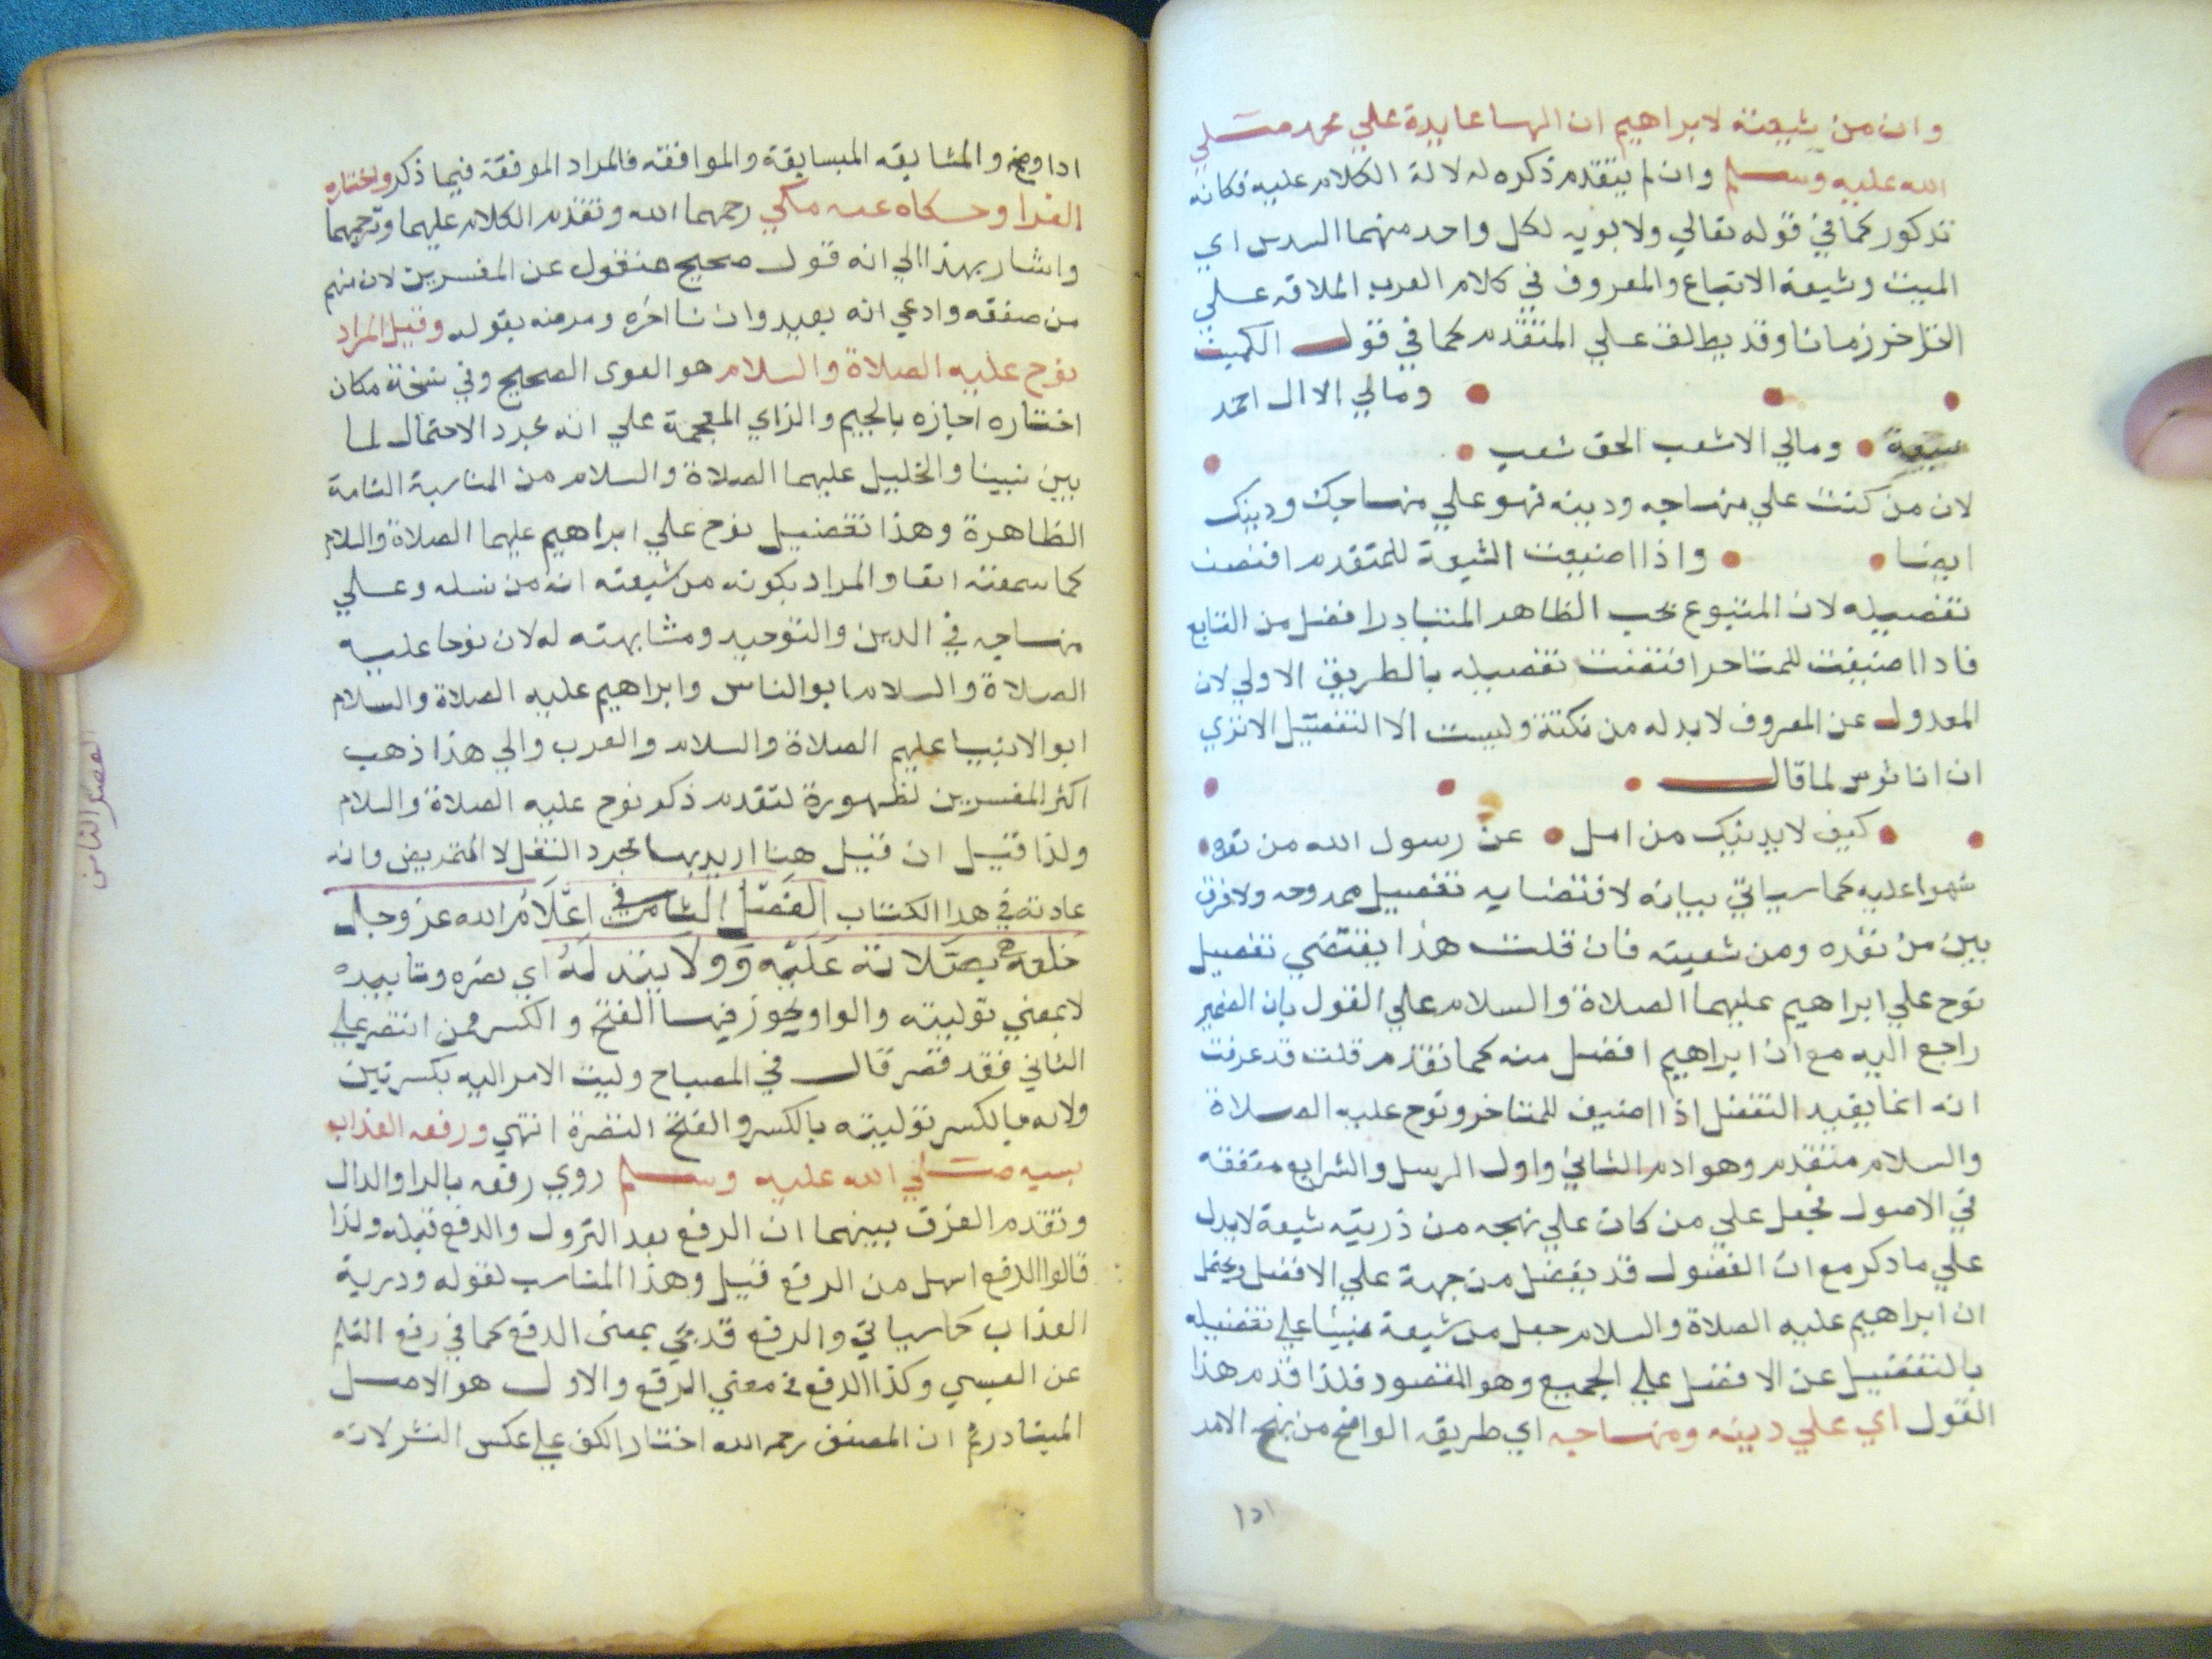 وان من شيعته لابراهيم ان الهـا عايدة علي محمد صلي
الله عليه وسلم وان لم يتقدم ذكره لدلالة الكلام عليه فكانه
تذكور كما في قوله تعالي ولابويه لكل واحد منهما السدس اي
الميت وشيعة الاتباع والمعروف في كلام العرب اطلاقه علي
المتاخر زمانا وقد يطلق علي المتقدم كما في قول الكميت
ومالي الا ال احمد
شيعة ومالي الا شعب الحق شعب
لان من كنت علي منهاجه ودينه فهو علي منهاجك ودينك
ايضا واذا اضيفت الشيعة للمتقدم اقتضت
تفضيله لان المتبوع بحب الظاهر المتبادر افضل من التابع
فاذا اضيفت للمتاخر اقتضت تفضيله بالطريق الاولي لان
المعدول عن المعروف لا بد له من نكتة وليست الا التفضيل الا تري
ان انا نوس لما قال
كيف لا يدنيك من امل عن رسول الله من نفره
شهوا عليه كما سياتي بيانه لاقتضايه تفضيل ممدوحه ولا فرق
بين من نفره ومن شعيته فان قلت هذا يقتضي تفضيل
نوح علي ابراهيم عليهما الصلاة والسلام علي القول بان الضمير
راجع اليه مع ان ابراهيم افضل منه كما تقدم قلت قد عرفت
انه انما يفيد التفضل اذا اضيف للمتاخر ونوح عليه الصلاة
والسلام متقدم وهو ادم الثاني واول الرسل والشرايع متفقه
في الاصول فجعل علي من كان علي نهجه من ذريته شيعة لا يدل
علي ما ذكر مع ان المفضول قد يفضل من جهة علي الافضل ويحتمل
ان ابراهيم عليه الصلاة والسلام جعل من شيعة نبينا علي تفضيله
بالتفضيل عن الافضل علي الجميع وهو المقصود فلذا قدم هذا
القول اي علي دينه ومنهاجه اي طريقه الواضح من نهج الامر
اذا وضح والمشايقه المسابقة والموافقه فالمراد الموفقة فيما ذكر واختاره
الفرا وحكاه عنه مكي رحمهما الله وتقدم الكلام عليهما وترجمهما
واشار بهذا الي انه قول صحيح منقول عن المفسرين لان منهم
من ضعفه وادعي انه بعيد وان نا اخره ومرضه بقوله وقيل المراد
نوح عليه الصلاة والسلام هو القوي الصحيح وفي نسخة مكان
اختاره اجازه بالجيم والزاي المعجمة علي انه مجرد الاحتمال لما
بين نبينا والخليل عليهما الصلاة والسلام من المناسبة التامة
الظاهرة وهذا تفضيل نوح علي ابراهيم عليهما الصلاة والسلام
كما سمعته انفا والمراد بكونه من شيعته انه من نسله وعلي
منهاجه في الدين والتوحيد ومشابهته له لان نوحا عليه
الصلاة والسلام ابو الناس وابراهيم عليه الصلاة والسلام
ابو الانبيا عليهم الصلاة والسلام والعرب والي هذا ذهب
اكثر المفسرين لظهورة لتقدم ذكر نوح عليه الصلاة والسلام
ولذا قيل ان قيل هنا اريد بها مجرد النقل لا التمريض وانه
عادته في هذا الكتاب الفصل الثامن في اعلام الله عز وجل
خلقه بصلاته عليه وولايته له اي نصره وتاييده
لا بمعني توليته والواو يجوز فيها الفتح والكسر ومن اقتصر علي
الثاني فقد قصر قال في المصباح وليت الامر اليه بكسرتين
ولاية بالكسر توليته بالكسر والفتح النصرة انتهي ورفعه العذاب
بسببه صلي الله عليه وسلم روي رفعه بالرا والدال
وتقدم الفرق بينهما ان الرفع بعد النزول والدفع قبله ولذا
قالوا الدفع اسهل من الرفع قيل وهذا المناسب لقوله ودرية
العذاب كما سياتي والرفع قد يجي بمعني الدفع كما في رفع القلم
عن الصبي وكذا الدفع في معني الرفع والاول هو الاصل
المتبادر ثم ان المصنف رحمه الله اختار الكف علي عكس النشر لانه
الفصل الثامن